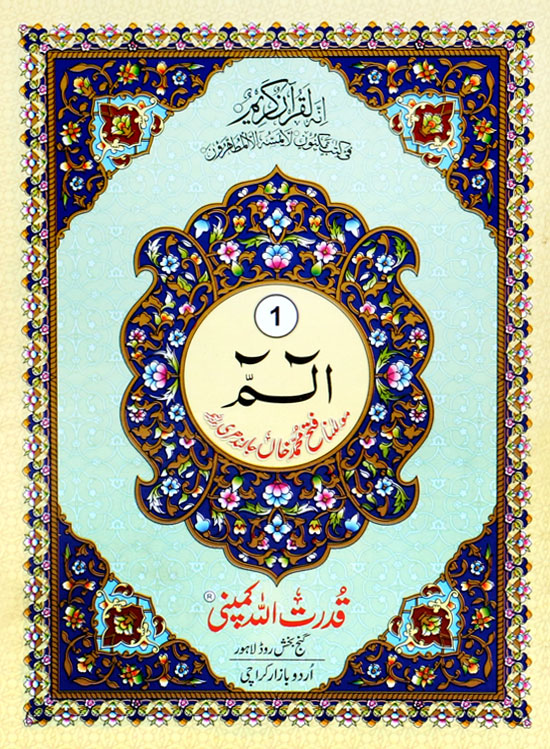 إنه لقرآن كريم
في كتاب مكنون لا يمسه إلا المطهرون
1
الٓمّٓ
مولانا فتح محمد خاں جالندھری
قدرت اللہ کمپنی ®
گنج بخش روڈ لاہور
اُردو بازار کراچی